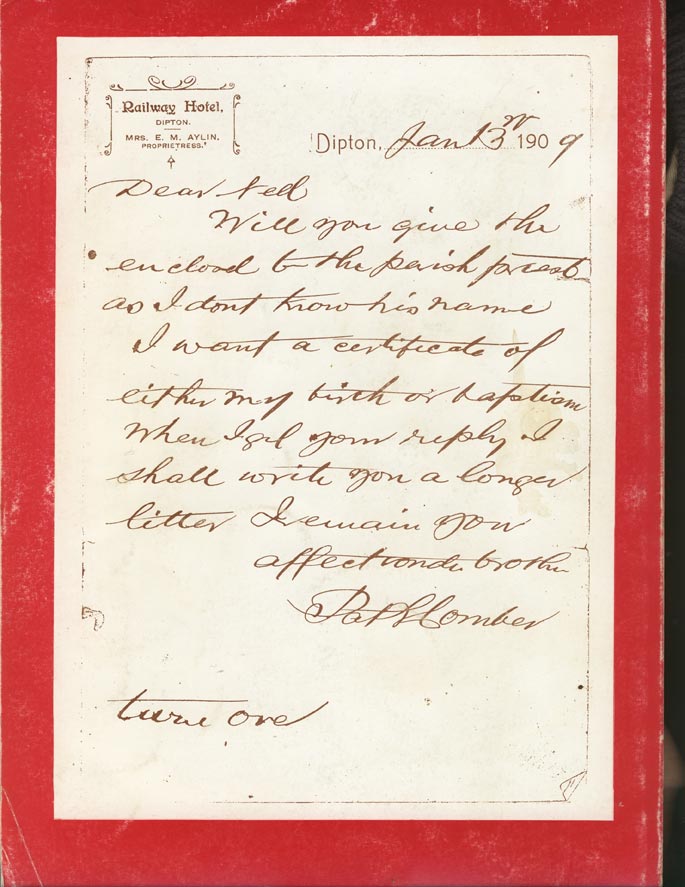 Railway Hotel,
DIPTON.
MRS. E. M. AYLIN,
PROPRIETRESS.
Dipton, Jan 13th 1909
Dear Ned
Will you give the
enclosd to the perish priest
as I dont know his name
I want a certificate of
either my birth or baptism
When I get your reply I
shall write you a longer
litter I remain your
affectionate brother
Pat Comber
turn over